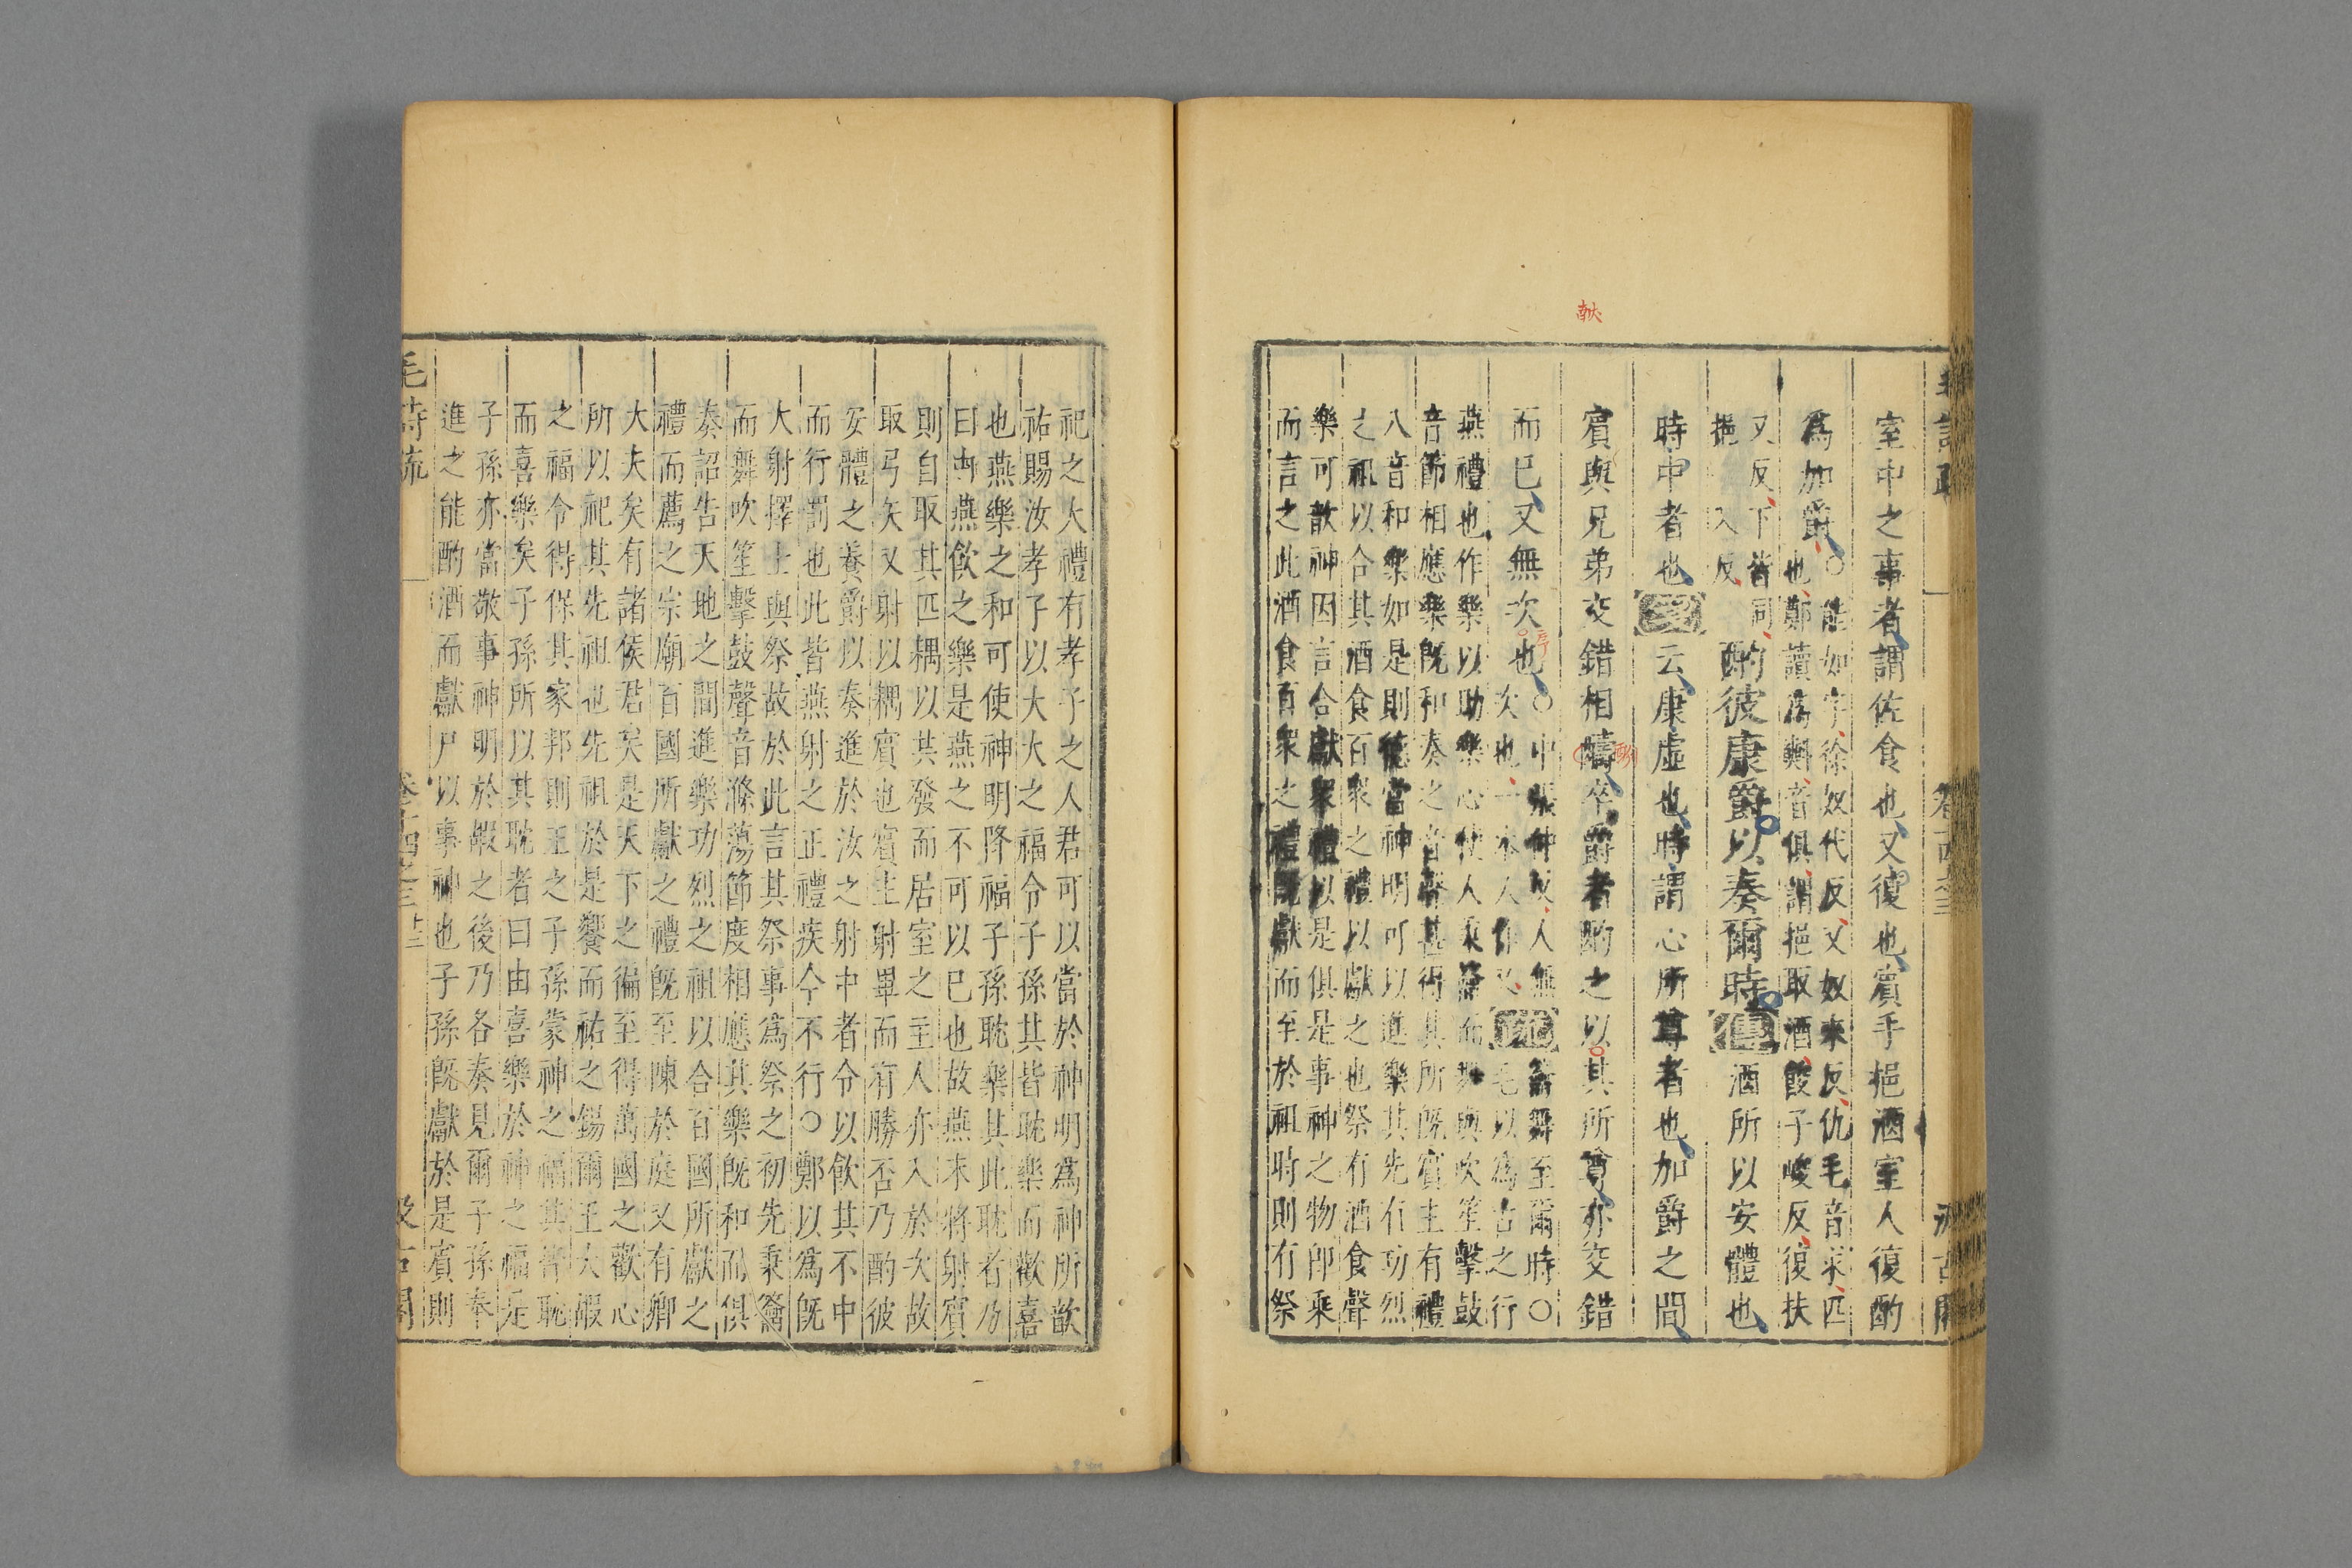 獻
室中之事者謂佐食也又復也賓手挹酒室人復酌
爲加爵○能如字徐奴代反又奴來反仇毛音求匹
也鄭讀爲㪺音俱謂挹取酒餕子峻反復扶
又反下皆同
挹入反
酌彼康爵以奏爾時傳酒所以安體也
時中者也箋云康虛也時謂心所尊者也加爵之間
賓與兄弟交錯相醻卒爵者酌之以其所尊亦交錯
而已又無次也○中張仲反人無
次也一本人作又
疏籥舞至爾時○
毛以爲古之行
燕禮也作樂以助樂心使人秉籥而舞與吹笙擊鼓
音節相應樂旣和奏之音聲甚得其所旣賓主有禮
八音和樂如是則德當神明可以進樂其先有功烈
之祖以合其酒食百衆之禮以獻之也祭有酒食聲
樂可歆神因言合獻衆禮以是俱是事神之物卽乘
而言之此酒食百衆之禮旣獻而至於祖時則有祭
祀之大禮有孝子之人君可以當於神明爲神所歆
祐賜汝孝子以大大之福令子孫其皆耽樂而歡喜
也燕樂之和可使神明降福子孫耽樂其此耽者乃
曰由燕飲之樂是燕之不可以已也故燕末將射賓
則自取其匹耦以其發而居室之主人亦入於次故
取弓矢又射以耦賓也賓主射畢而有勝否乃酌彼
安體之養爵以奏進於汝之射中者令以飲其不中
而行罰也此皆燕射之正禮疾今不行○鄭以爲旣
大射擇士與祭故於此言其祭事爲祭之初先秉籥
而舞吹笙擊鼓聲音滌蕩節度相應其樂旣和而俱
奏詔告天地之間進樂功烈之祖以合百國所獻之
禮而薦之宗廟百國所獻之禮旣至陳於庭又有卿
大夫矣有諸侯君矣是天下之徧至得萬國之歡心
所以祀其先祖也先祖於是饗而祐之錫爾王大嘏
之福令得保其家邦則王之子孫蒙神之福其皆耽
而喜樂矣子孫所以其耽者曰由喜樂於神之福是
子孫亦當敬事神明於嘏之後乃各奏見爾子孫奉
進之能酌酒而獻尸以事神也子孫旣獻於是賓則
毛詩疏
卷十四之三
汲古閣